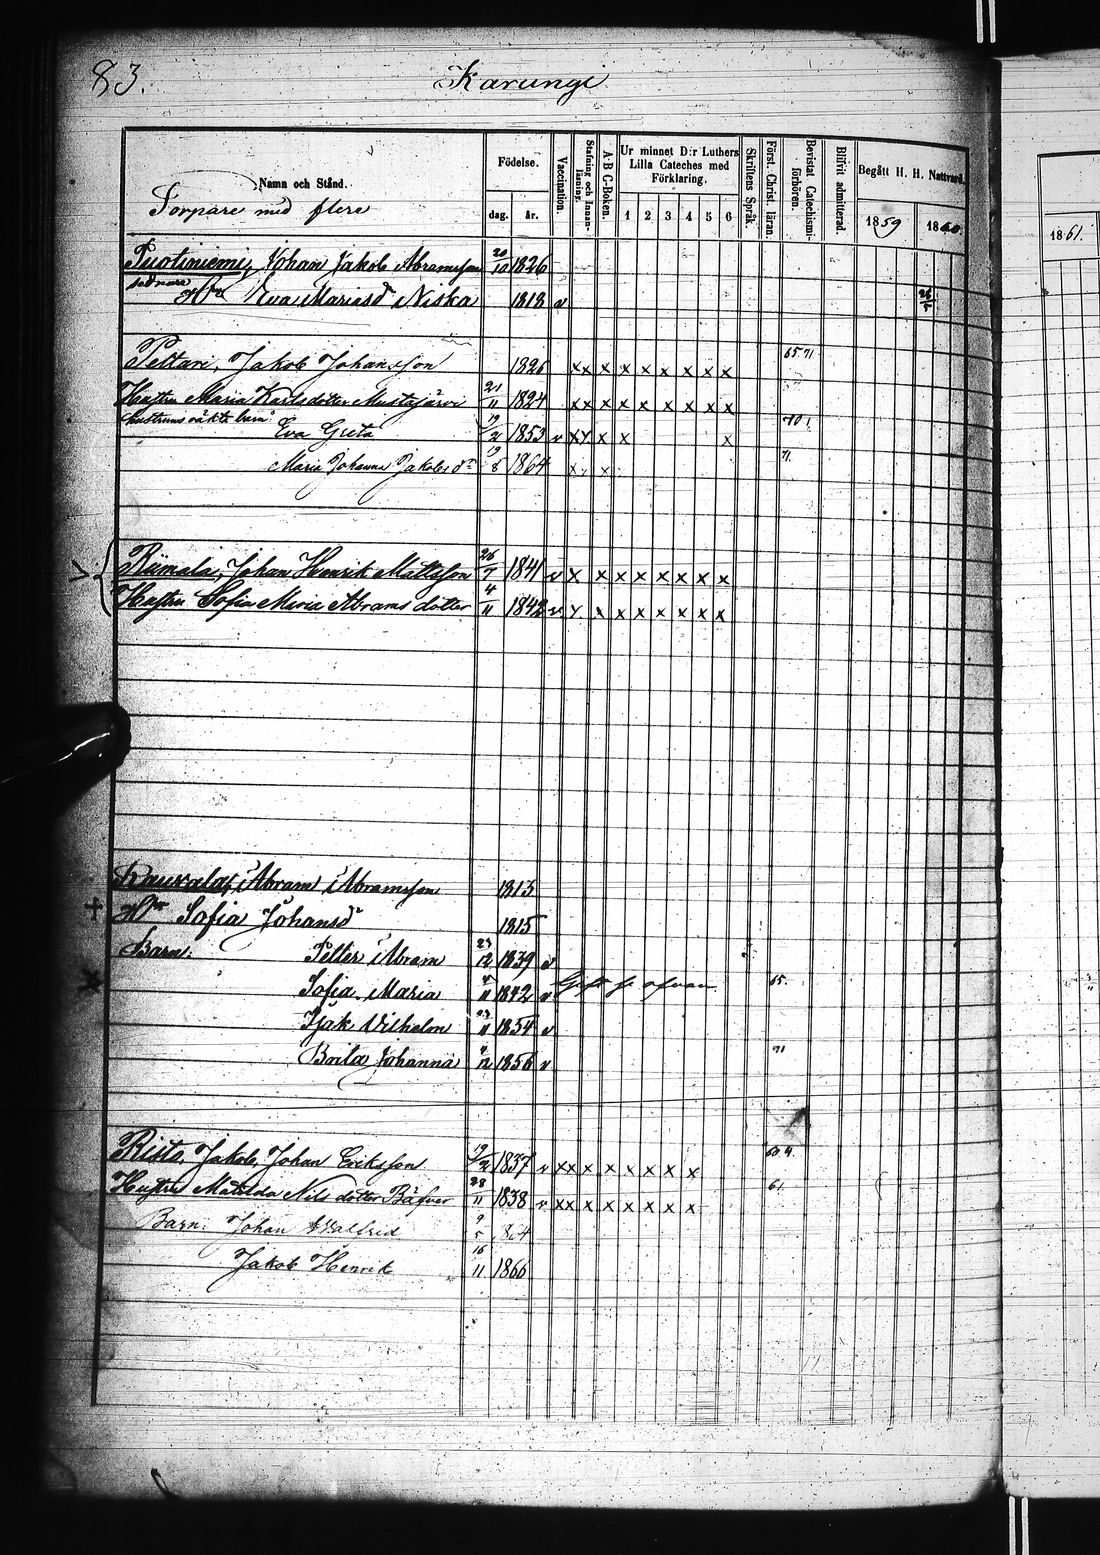 83.
Karungi
Namn och Stånd.
Torpare med flere
Födelse.
dag. år.
Vaccination.
Stafning och Innanläsning.
A B C-Boken.
Ur minnet D:r Luthers Lilla Cateches med Förklaring.
1 2 3 4 5 6
Skriftens Språk.
Först. Christ. läran.
Bevistat Catechismiförhören.
Blifvit admitterad.
Begått H. H. Nattvard.
1859 1860
1861.
Puotiniemi, Johan Jakob Abramsson 20/10 1826
sednare
Hru Eva Mariasd Niska 1818 v 26/5
Pettari, Jakob Johansson 1826 x x x x x x x x x 65 71
Hustru Maria Karlsdotter Mustajärvi 21/11 1824 x x x x x x x x x
hustruns oäkta barn: Eva Greta 19/2 1853 v x x x x x 70
Maria Johanna Jakobsdr 19/8 1864 x x x 71.
Riimala, Johan Henrik Mattsson 26/7 1841 v x x x x x x x x
Hustru Sofia Maria Abramsdotter 4/11 1842 v x x x x x x x x
Abram Abramsson 1813
+ Hru Sofia Johansdr 1815
Barn: Petter Abram 23/12 1839 v
Sofia Maria 4/11 1842 v Gift se ofvan 65.
Isak Vilhelm 23/11 1854 v
Brita Johanna 11/12 1856 v 71
Risto, Jakob, Johan Eriksson 19/2 1837 v x x x x x x x x
Hustru Matilda Nilsdotter Bäfver 28/11 1838 v x x x x x x x x 61
Barn: Johan Walfrid 9/5 864
Jakob Henrik 16/11 1866